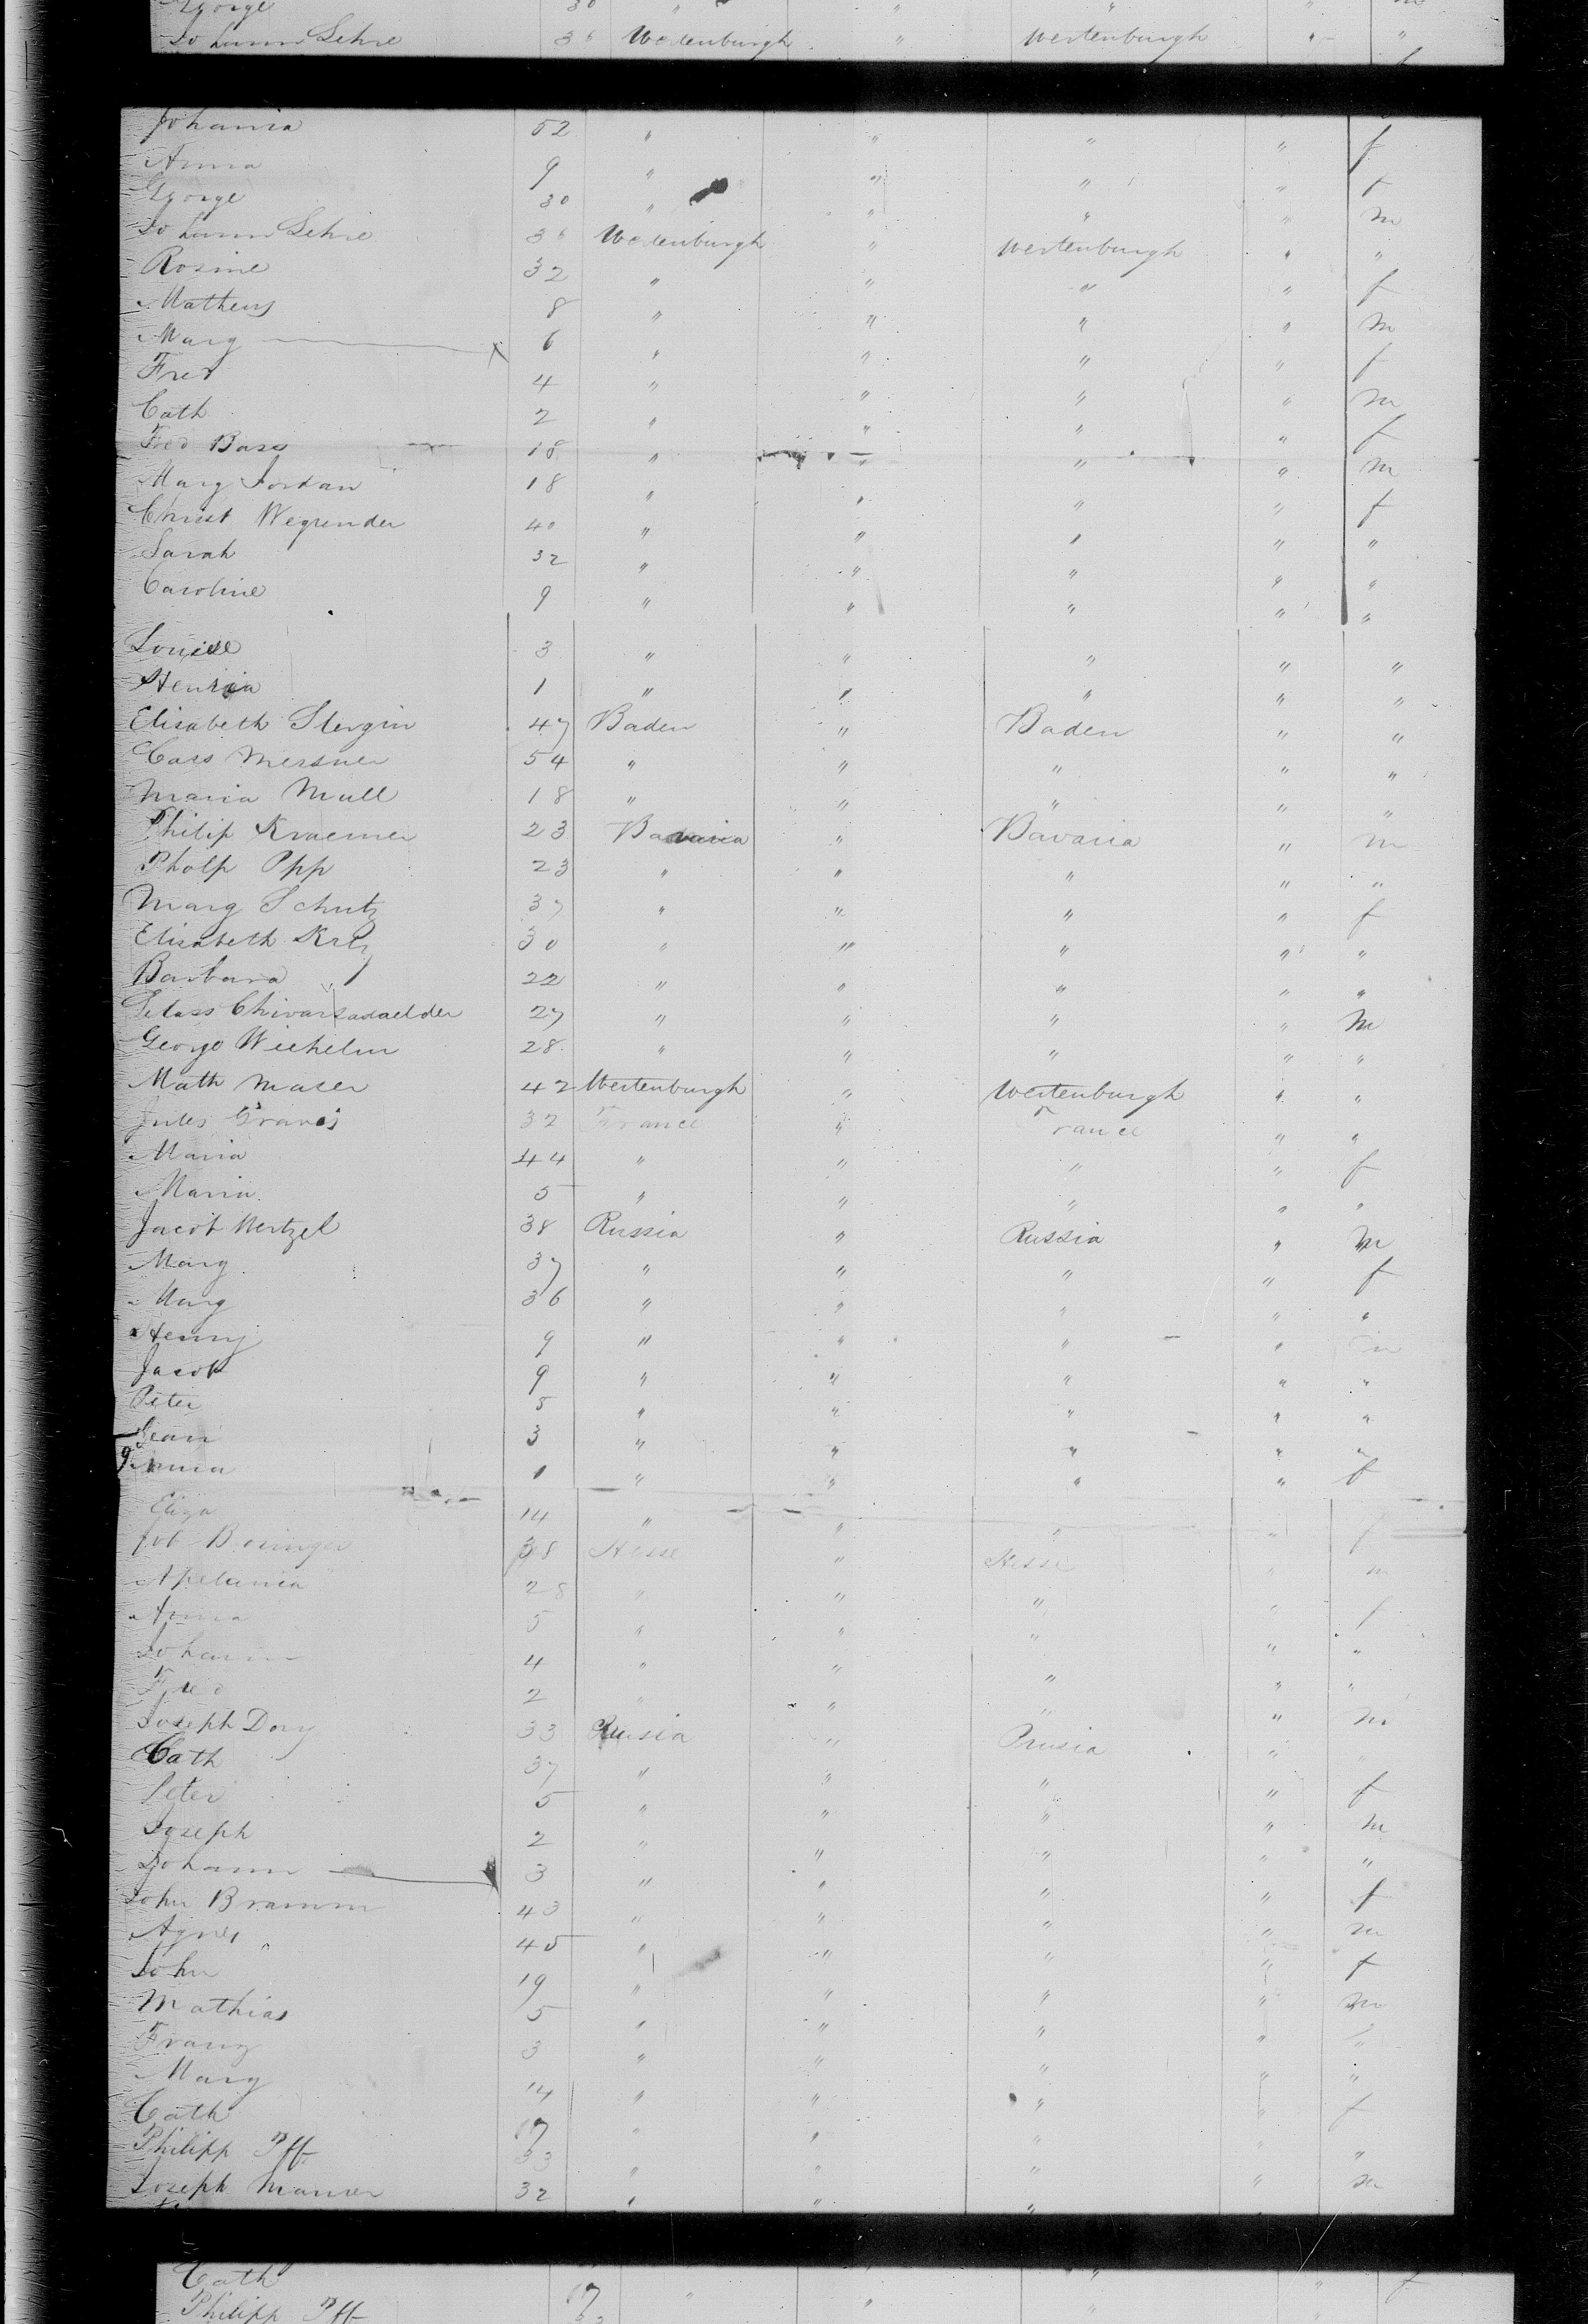 George 30 " " " " m
Johann Sehre 36 Wertenburgh " Wertenburgh " "
Johania 52 " " " " f
Anna 9 " " " " f
George 30 " " " " m
Johann Sehre 36 Wertenburgh " Wertenburgh " "
Rosine 32 " " " " f
Matheus 8 " " " " m
Marg 6 " " " " f
Fred 4 " " " " m
Cath 2 " " " " f
Fred Bass 18 " " " " m
Marg Jordan 18 " " " " f
Christ Wegrender 40 " " " " "
Sarah 32 " " " " "
Caroline 9 " " " " "
Louise 3 " " " " "
Henria 1 " " " " "
Elisabeth Stergin 47 Baden " Baden " "
Cass Mersner 54 " " " " "
Maria Mull 18 " " " " "
Philip Kraemer 23 Bavaria " Bavaria " m
Pholp Opp 23 " " " " "
Marg Schutz 37 " " " " f
Elisabeth 30 " " " " "
Barbara 22 " " " " "
27 " " " " m
George Wiehelm 28 " " " " "
Math Maser 42 Wertenburgh " Wertenburgh " "
Jules 32 France " France " "
Maria 44 " " " " f
Maria 5 " " " " "
Jacob Wertzel 38 Russia " Russia " m
Marg 37 " " " " f
Marg 36 " " " " "
Henry 9 " " " " m
Jacob 9 " " " " "
Peter 5 " " " " "
Jean 3 " " " " "
Anna 1 " " " " f
Eliza 14 " " " " f
Job 38 Hesse " Hesse " m
Apelunia 28 " " " " f
Anna 5 " " " " "
Johann 4 " " " " "
Fred 2 " " " " m
Joseph Dory 33 Prusia " Prusia " "
Cath 37 " " " " f
Peter 5 " " " " m
Joseph 2 " " " " "
Johann 3 " " " " f
John Bramm 43 " " " " m
Agnes 45 " " " " f
John 19 " " " " m
Mathias 5 " " " " "
Franz 3 " " " " "
Marg 14 " " " " f
Cath 17 " " " " "
Philipp Pff 33 " " " " m
Joseph Manser 32 " " "
Cath 17 " " " " f
Philipp Pff 33